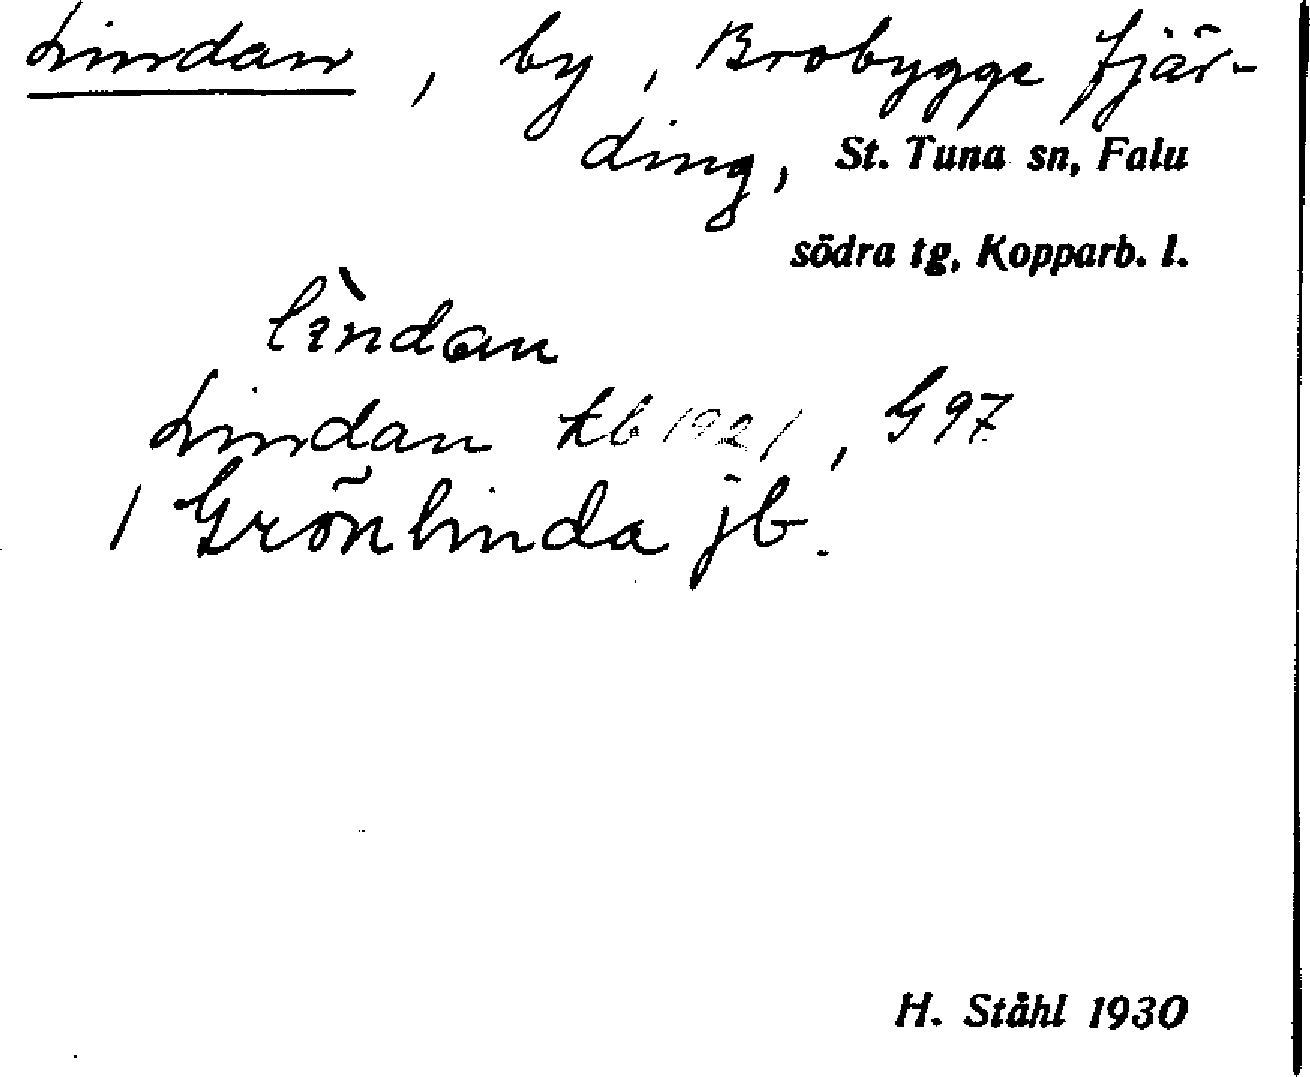 Lindan, by, Brobygge fjär-
ding, St. Tuna sn, Falu
södra tg, Kopparb. l.
lìndan
Lindan kb 1921, G 97
1 Grönlinda jb.
H. Ståhl 1930